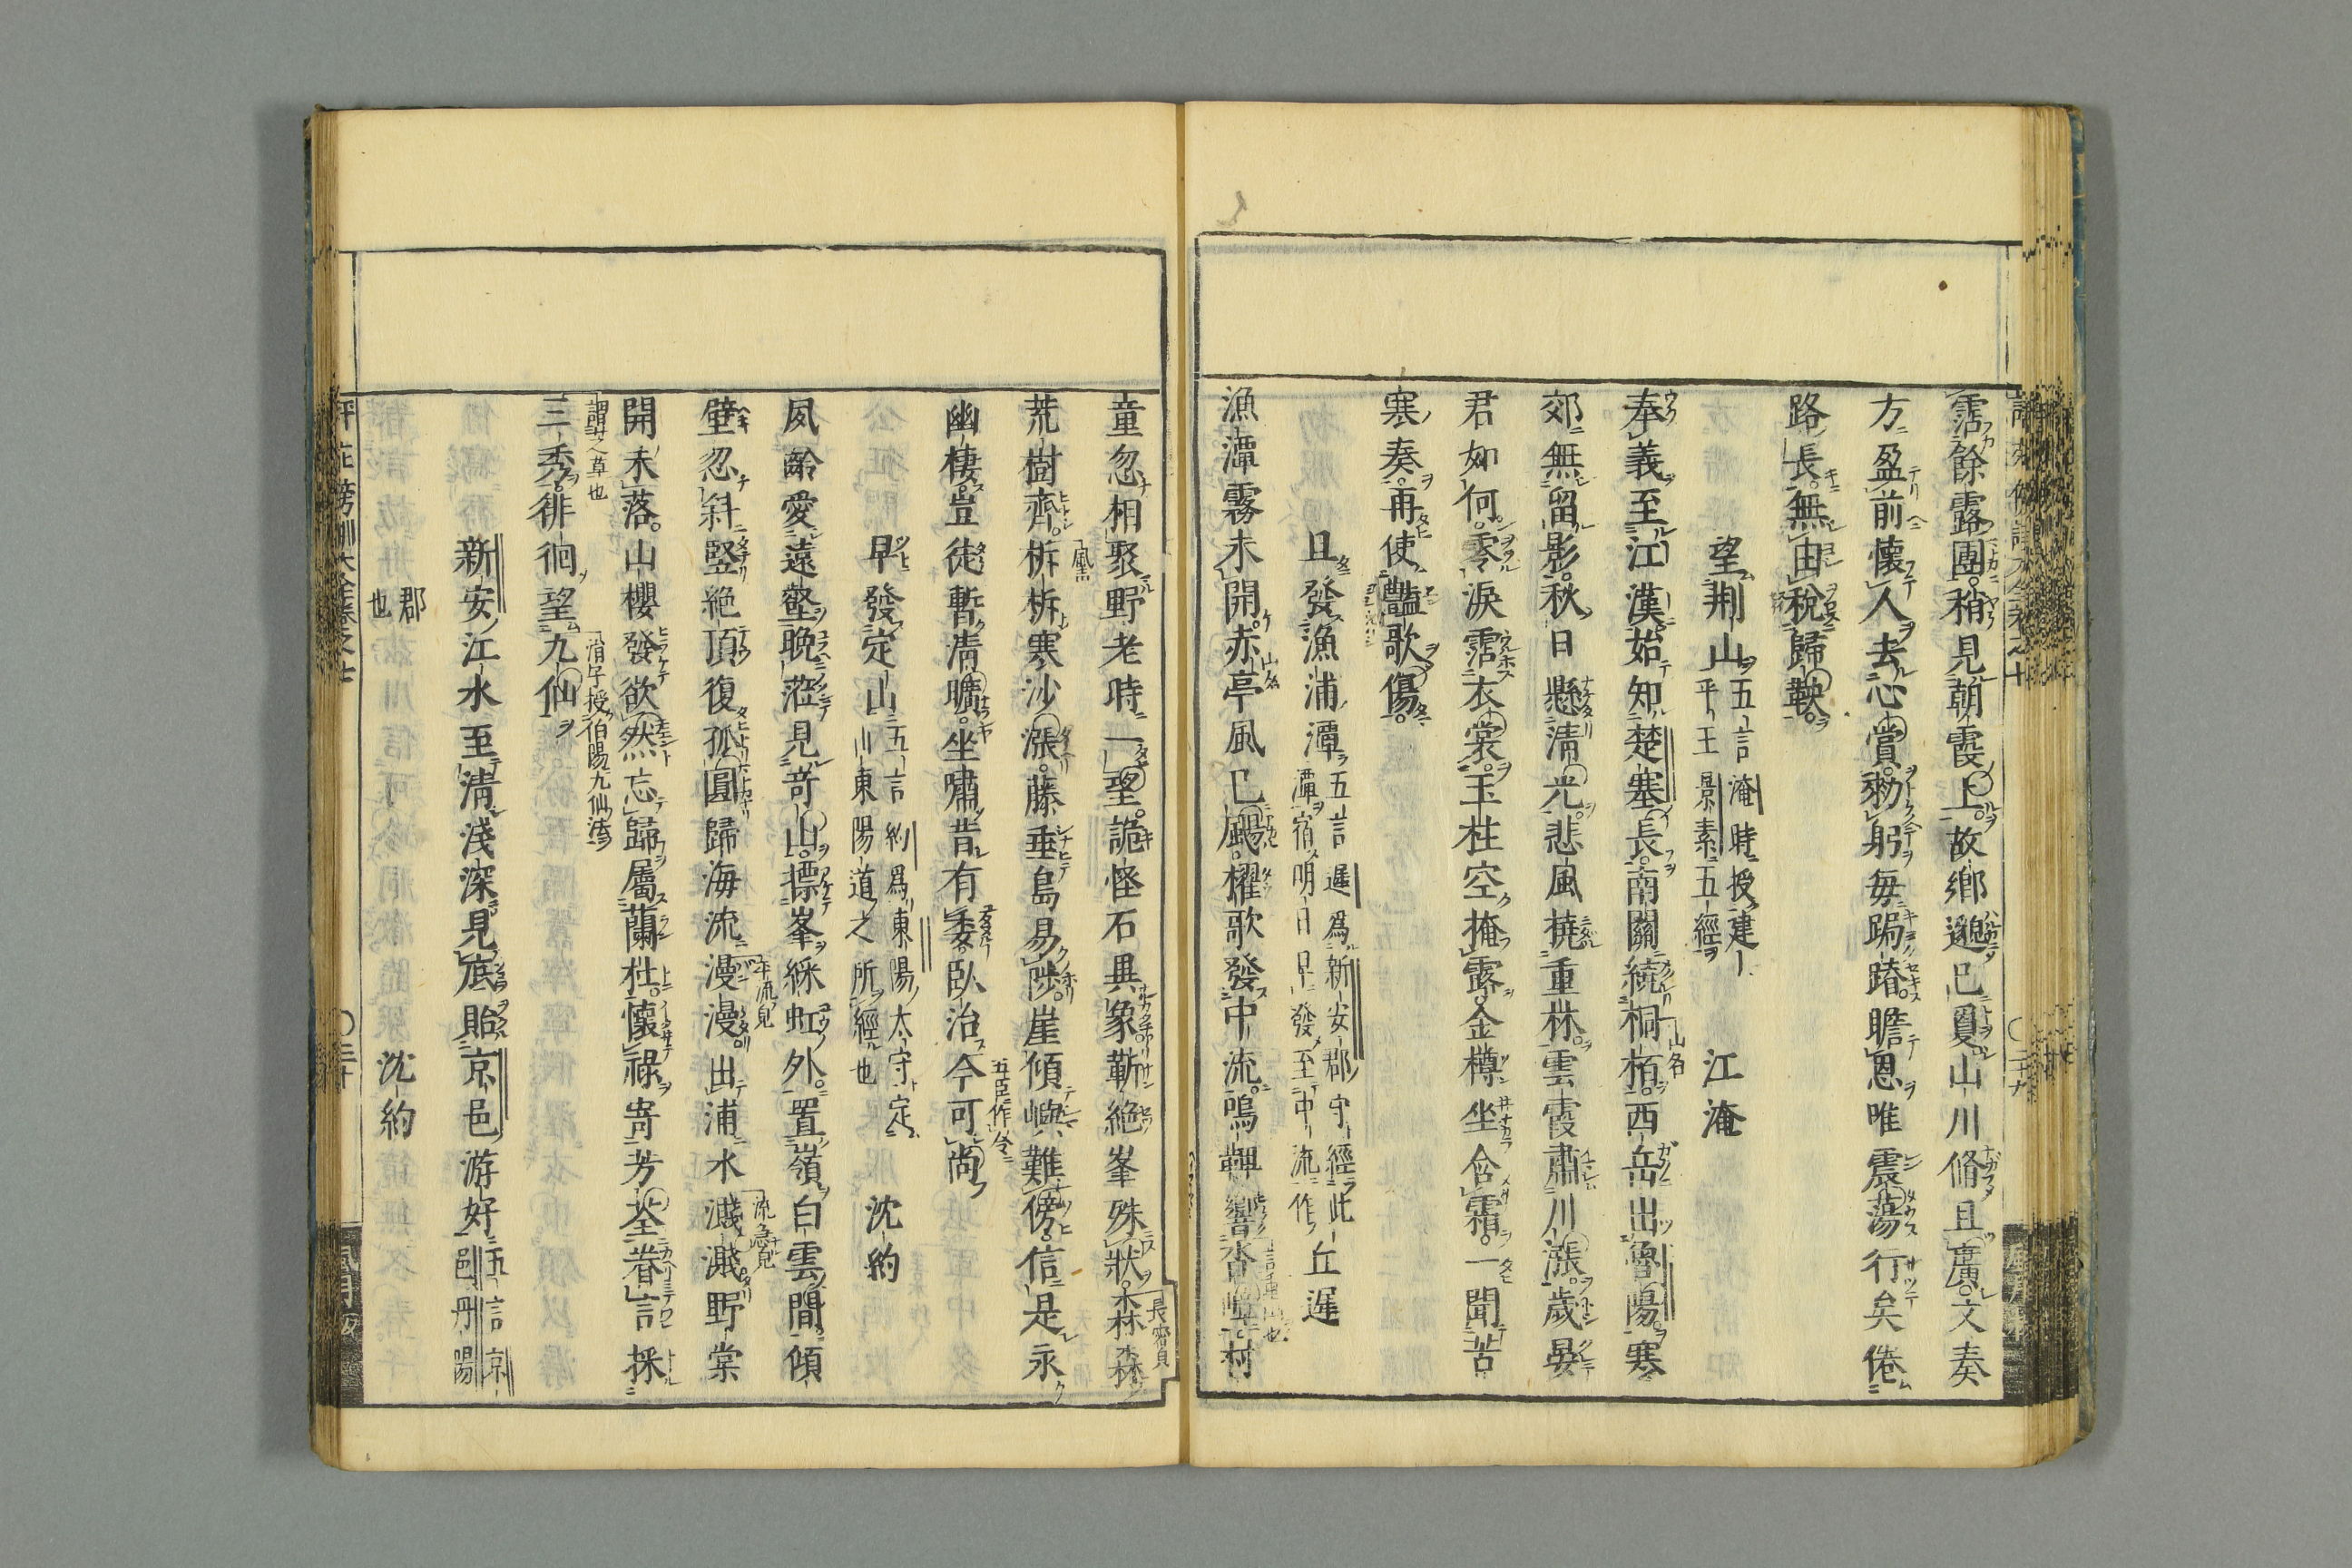 霑餘露團稍見朝霞上故鄉邈已敻山川脩且廣文奏
方盈前懷人去心賞勑躬每跼蹐瞻恩唯震蕩行矣倦
路長無由稅歸鞅
望荊山 五言 淹時授建平王景素五經 江淹
奉義至江漢始知楚塞長南關繞桐栢西岳出魯陽寒
郊無留影秋日懸清光悲風撓重林雲霞肅川漲歲晏
君如何零淚霑衣裳玉柱空掩露金樽坐含霜一聞苦
寒奏再使豔歌傷
旦發漁浦潭 五言 遲爲新安郡守經此潭宿明日早發至中流作 丘遲
漁潭霧未開赤亭風已颺櫂歌發中流鳴鞞響沓嶂村
童忽相聚野老時一望詭怪石異象嶄絕峯殊狀森森
荒樹齊析析寒沙漲藤垂島易陟崖傾嶼難傍信是永
幽棲豈徒暫清曠坐嘯昔有委臥治今可尚
早發定山 五言 約爲東陽太守定山東陽道之所經也 沈約
夙齡愛遠壑晚蒞見奇山摽峯綵虹外置嶺白雲間傾
壁忽斜竪絕頂復孤圓歸海流漫漫出浦水濺濺野棠
開未落山櫻發欲然忘歸屬蘭杜懷祿寄芳荃眷言採
三秀徘徊望九仙
新安江水至清淺深見底貽京邑游好 五言 京邑丹陽
郡也 沈約